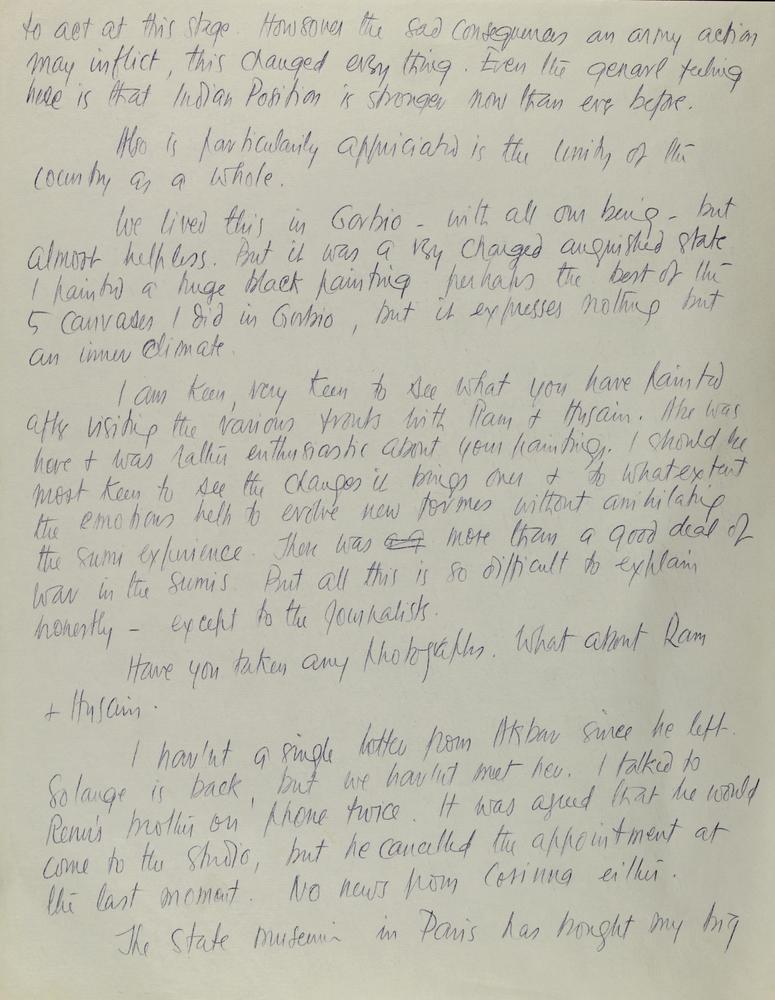 to act at this stage. Howsover the sad consequences an army action
may inflict, this changed every thing. Even the genarl feeling
here is that Indian Position is stronger now than ever before.
Also is particularily appriciated is the Unity of the
country as a whole.
We lived this in Gorbio - with all our being - but
almost helpless. But it was a very charged anguished state
I painted a huge black painting perhaps the best of the
5 canvases I did in Gorbio, but it expresses nothing but
an inner climate.
I am keen, very keen to see what you have painted
after visiting the various fronts with Ram + Husain. He was
here + was rather enthusiastic about your paintings. I should be
most keen to see the changes it brings over + to what extent
the emotions help to evolve new formes without anihilating
the sumi experience. There was more than a good deal of
war in the Sumis. But all this is so difficult to explain
honestly - except to the Journalists.
Have you taken any photographs. What about Ram
+ Husain.
I hav'nt a single letter from Akbar since he left.
Solange is back, but we hav'nt met her. I talked to
Renu's brother on phone twice. It was agreed that he would
come to the studio, but he cancelled the appointment at
the last moment. No news from Corinna either.
The State museum in Paris has bought my big